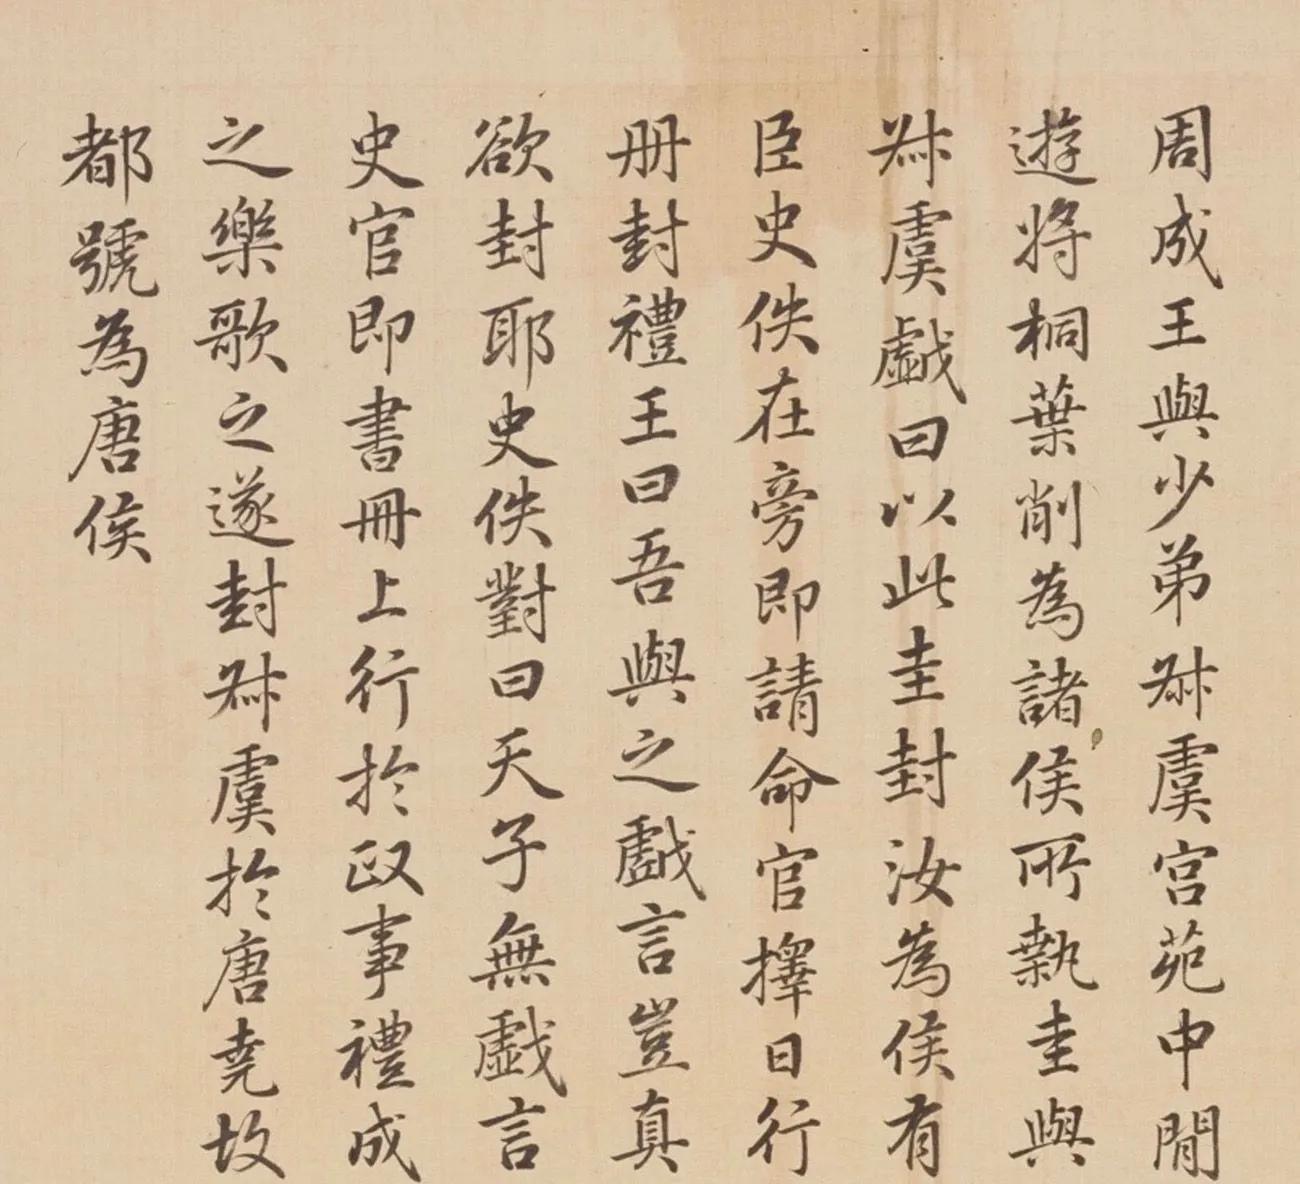 周成王與少弟叔虞宮苑中閒
遊將桐葉削為諸侯所執圭與
叔虞戯曰以此圭封汝為侯有
臣史佚在旁即請命官擇日行
册封禮王曰吾與之戯言豈真
欲封耶史佚對曰天子無戯言
史官即書冊上行於政事禮成
之樂歌之遂封叔虞於唐堯故
都號為唐侯